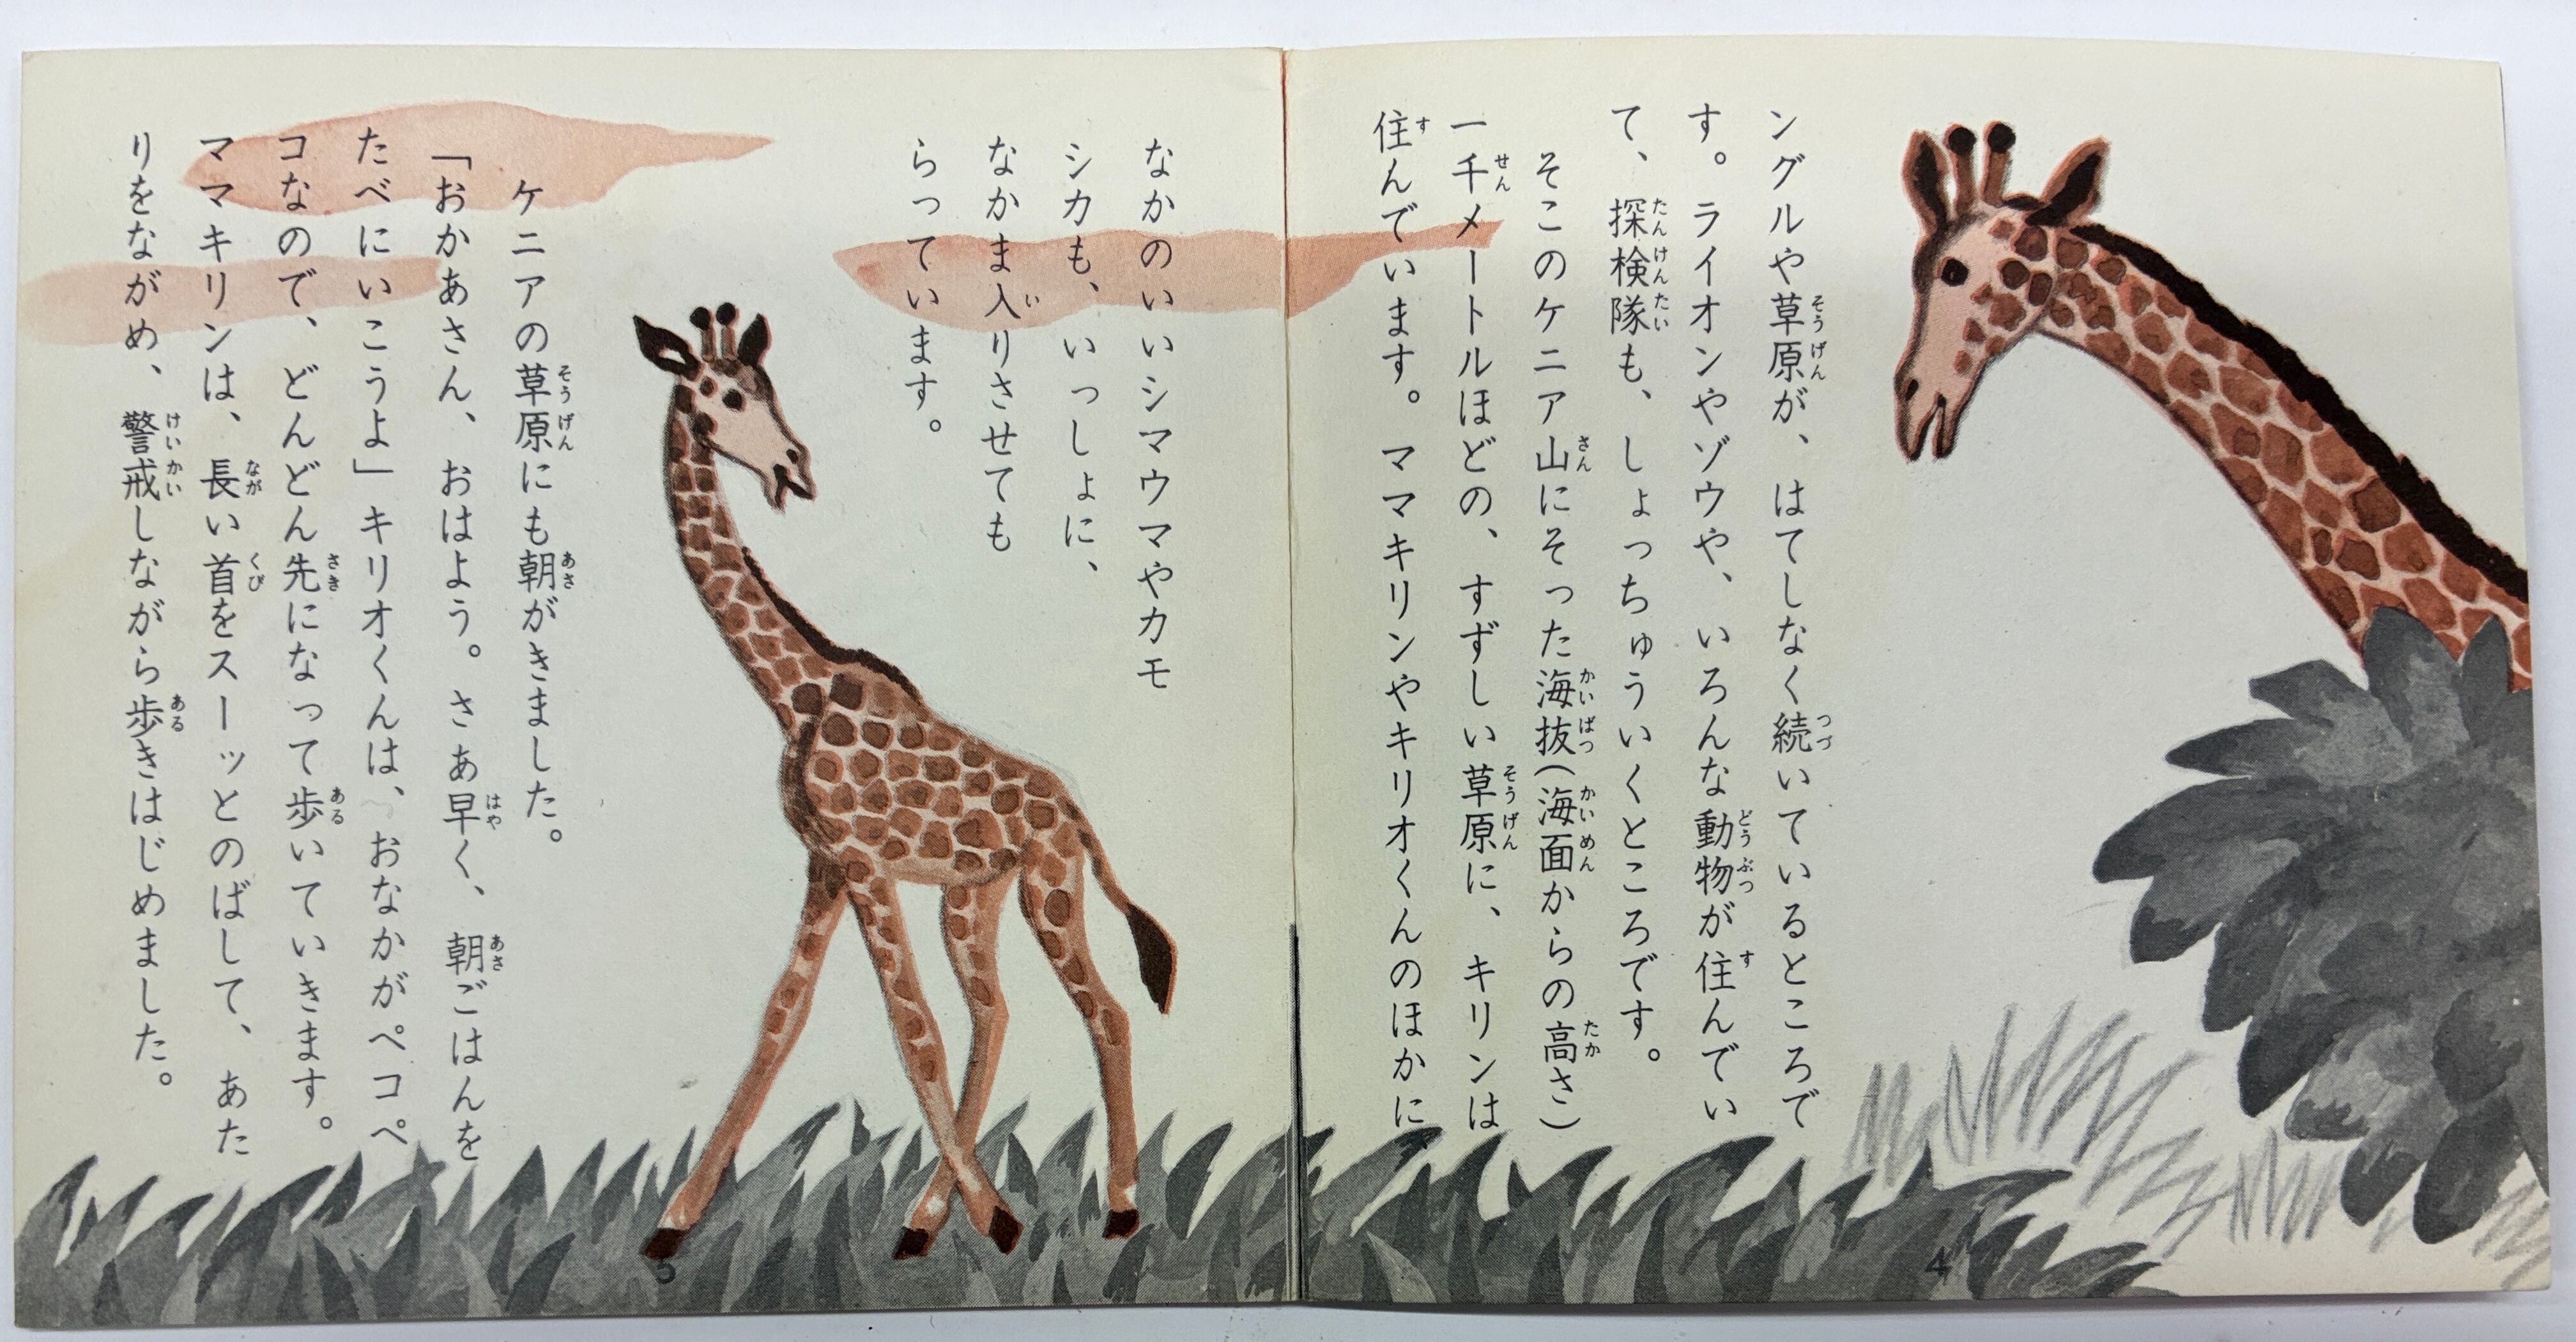 ングルや草原が、はてしなく続いているところで
す。ライオンやゾウや、いろんな動物が住んでい
て、探検隊も、しょっちゅういくところです。
そこのケニア山にそった海抜(海面からの高さ)
一千メートルほどの、すずしい草原に、キリンは
住んでいます。ママキリンやキリオくんのほかに、
4
なかのいいシマウマやカモ
シカも、いっしょに、
なかま入りさせても
らっています。
ケニアの草原にも朝がきました。
「おかあさん、おはよう。さあ早く、朝ごはんを
たべにいこうよ」キリオくんは、おなかがペコペ
コなので、どんどん先になって歩いていきます。
ママキリンは、長い首をスーッとのばして、あた
りをながめ、警戒しながら歩きはじめました。
5